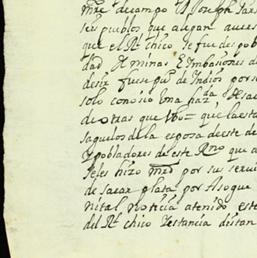 mre de campo D Joseph Sar
seis pueblos que alegan aver
que el Rl chico se fue despob
dad de minas E imbasiones d
desir fuese pu de Indios por s
solo conosio Una hazda de sac
de otras que
saquelos de la esposa de este de
y pobladores de este Rno que a
seles hizo mrd por sus servi
de sacar plata por Asogue
nital notisia atenido este
del Rl chico Jestancia distan